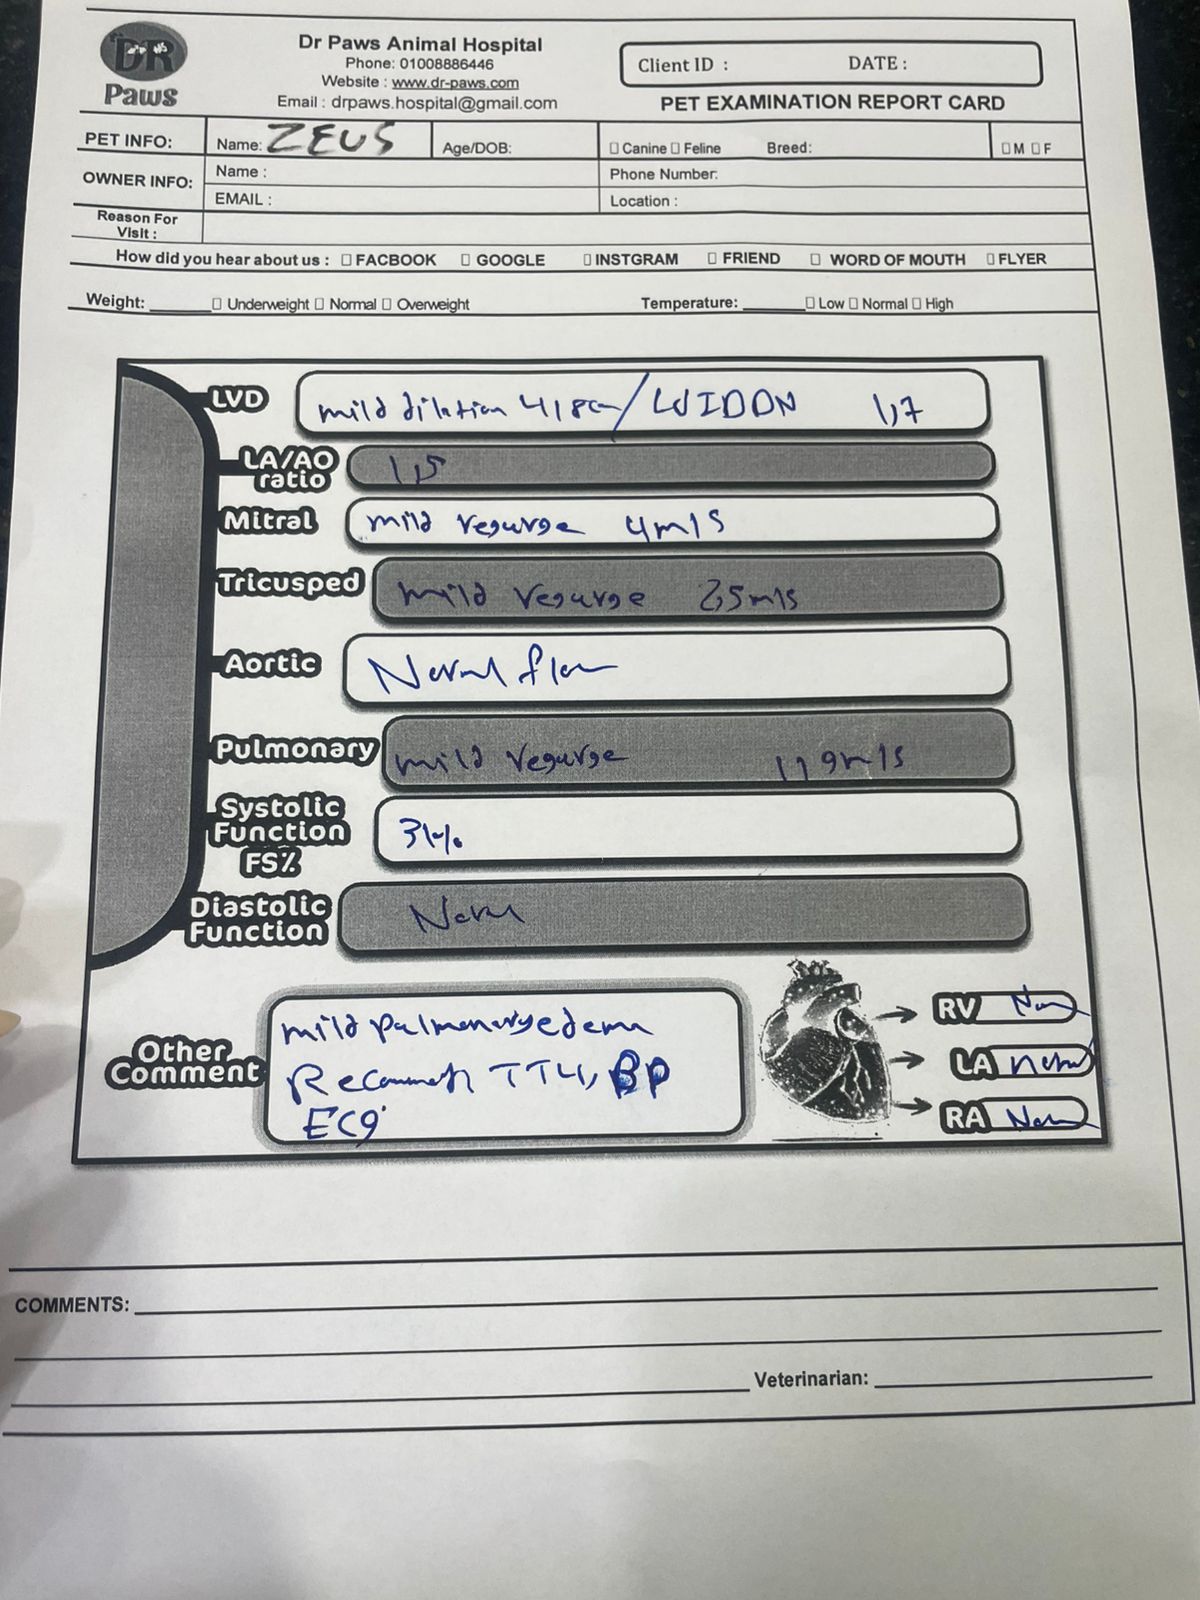 DR
Paws
Dr Paws Animal Hospital
Phone: 01008886446
Website : www.dr-paws.com
Email : drpaws.hospital@gmail.com
Client ID : DATE :
PET EXAMINATION REPORT CARD
PET INFO: Name: ZEUS Age/DOB: Canine Feline Breed: M F
OWNER INFO: Name : Phone Number:
EMAIL : Location :
Reason For Visit :
How did you hear about us : FACBOOK GOOGLE INSTGRAM FRIEND WORD OF MOUTH FLYER
Weight: Underweight Normal Overweight Temperature: Low Normal High
LVD mild dilation 4,8cm / LVIDDN 1,7
LA/AO ratio 1,5
Mitral mild regurge 4m/s
Tricusped mild regurge 2,5m/s
Aortic Normal flow
Pulmonary mild regurge 1,9m/s
Systolic Function FS%
Diastolic Function Norm
Other Comment mild pulmonary edema
Recommend TT4, BP
ECG
RV Nor
LA normal
RA Norm
COMMENTS:
Veterinarian: